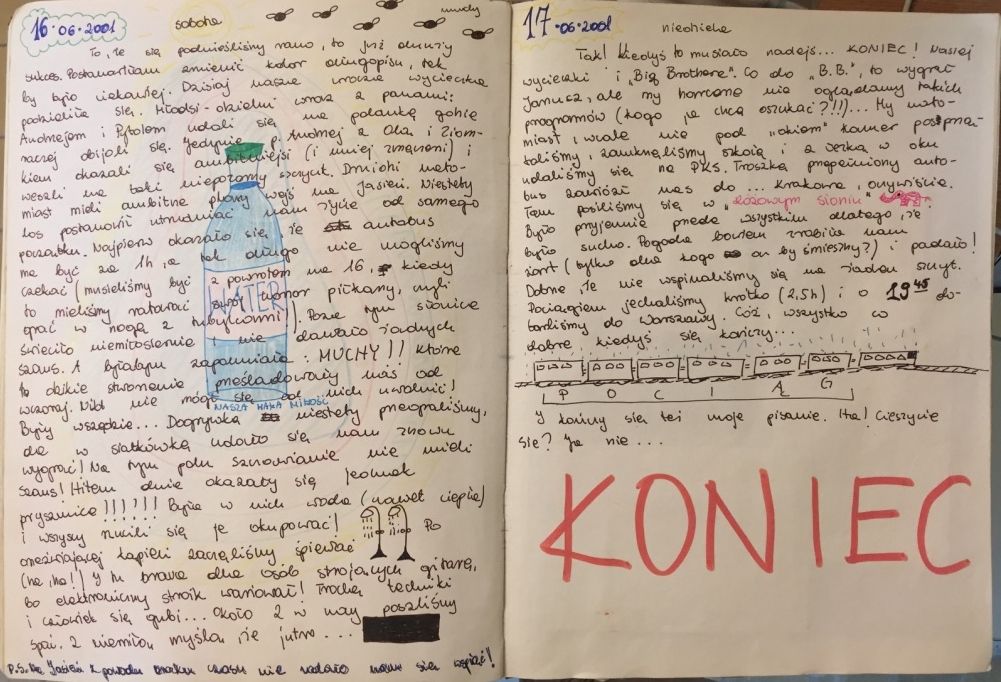 16.06.2001
sobota
muchy
To, że się podnieśliśmy rano, to już duży
sukces. Postanowiłam zmienić kolor długopisu, tak
by było ciekawiej. Dzisiaj nasza urocza wycieczka
podzieliła się. Młodsi-dzielni wraz z panami:
Andrzejem i Pytolem udali się na polankę gdzie
raczej obijali się. Jedynie p. Andrzej z Olą i Ziom-
kiem okazali się ambitniejsi (i mniej zmęczeni) i
weszli na taki niepozorny szczyt. Druhowie nato-
miast mieli ambitne plany wejść na Jasień. Niestety
los postanowił utrudniać nam życie od samego
początku. Najpierw okazało się że autobus
ma być za 1h, a tak długo nie mogliśmy
czekać (musieliśmy być z powrotem na 16, kiedy
to mieliśmy ratować honor piłkarzy, czyli
grać w nogę z tubylcami). Poza tym słońce
świeciło niemiłosiernie i nie dawało żadnych
szans. A byłabym zapomniała: MUCHY!! Które
to dzikie stworzenia prześladowały nas od
wczoraj. Nikt nie mógł się od nich uwolnić!
Były wszędzie... Dogrywkę niestety przegraliśmy,
ale w siatkówkę udało się nam znowu
wygrać! Na tym polu szanowanie nie mieli
szans! Hitem dnia okazały się jednak
prysznice!!!!!! Była w nich woda (nawet ciepła)
i wszyscy rzucili się je okupować! Po
orzeźwiającej kąpieli zaczęliśmy śpiewać
(ha, ha!) I tu brawa dla osób strojących gitarę,
bo elektroniczny stroik wariował! Trochę techniki
i człowiek się gubi... Około 2 w nocy poszliśmy
spać. Z niemiłą myślą, że jutro...
P.S. Na Jasień z powodu braku czasu nie udało nam się wspiąć!
WATER
NASZA MAŁA MIŁOŚĆ
17.06.2001
niedziela
Tak! Kiedyś to musiało nadejść... KONIEC! Naszej
wycieczki i „Big Brothera". Co do „B.B.", to wygrał
Janusz, ale my harcerze nie oglądamy takich
programów (kogo ja chcę oszukać?!!)... My nato-
miast, wcale nie pod „okiem" kamer posprzą-
taliśmy, zamknęliśmy szkołę i z łezką w oku
udaliśmy się na PKS. Troszkę przepełniony auto-
bus zawiózł nas do... Krakowa, oczywiście.
Tam posililiśmy się w „różowym słoniu".
Było przyjemnie przede wszystkim dlatego, że
było sucho. Pogoda bowiem zrobiła nam
żart (tylko dla kogo on by śmieszny?) i padało!
Dobrze, że nie wspinaliśmy się na żaden szczyt.
Pociągiem jechaliśmy krótko (2,5h) i o 19⁴⁵ do-
tarliśmy do Warszawy. Cóż, wszystko co
dobre kiedyś się kończy...
P O C I Ą G
I kończy się też moje pisanie. Ha! Cieszycie
się? Ja nie...
KONIEC